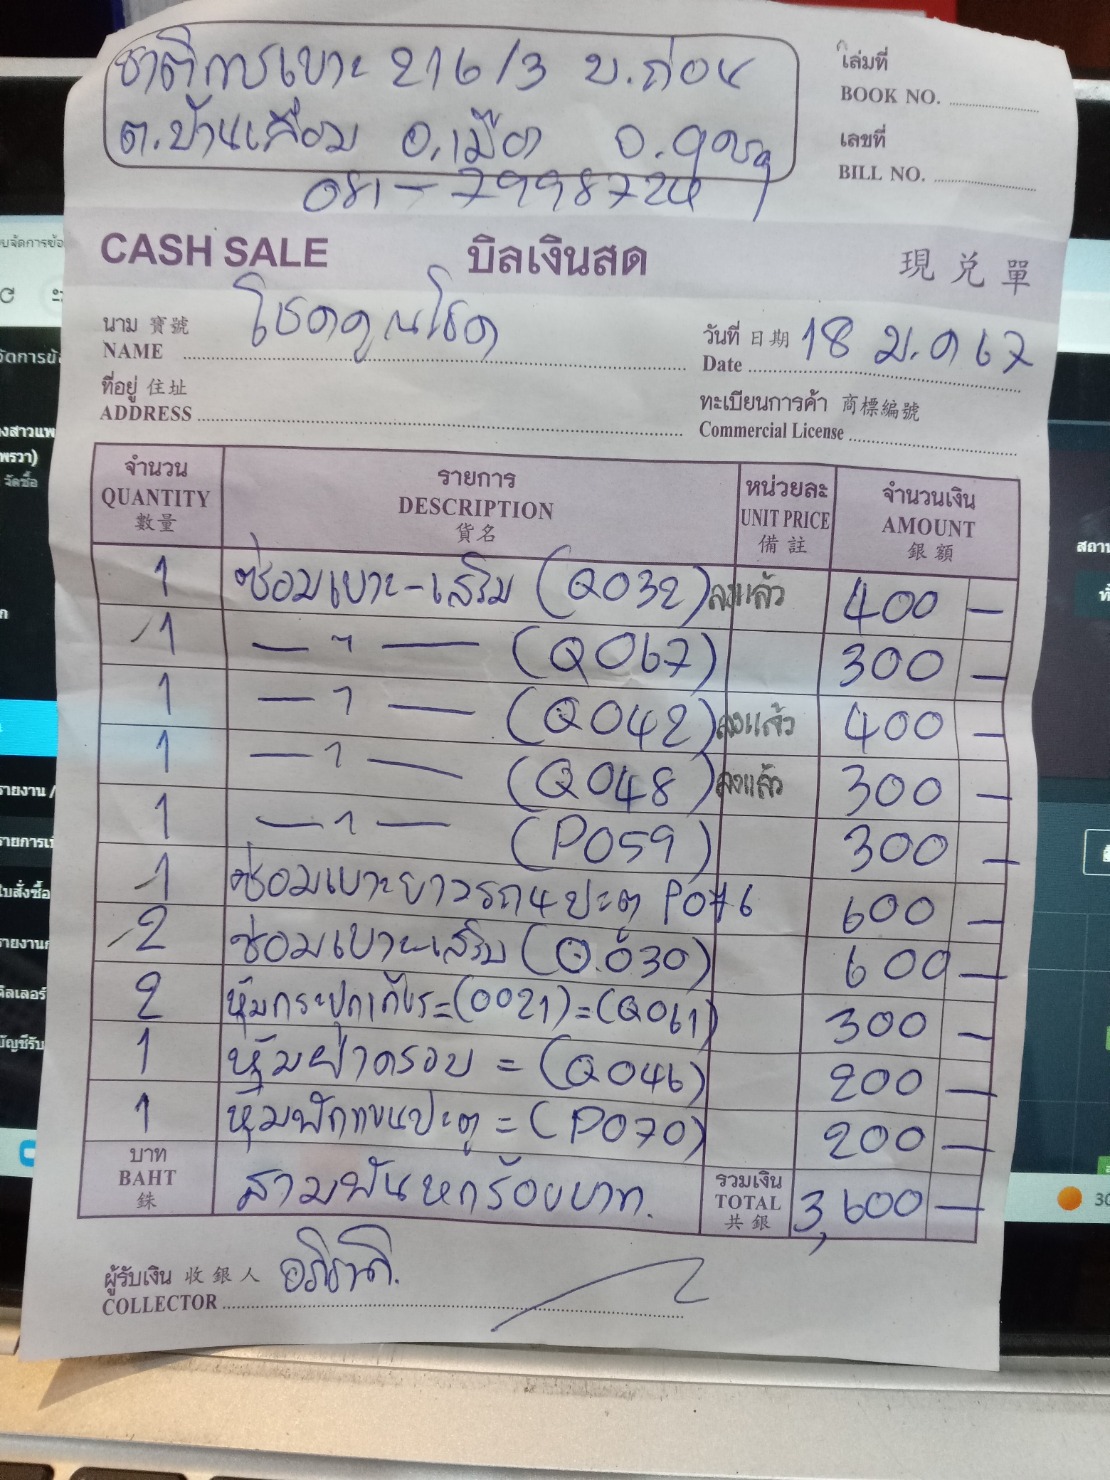 ชาติการเบาะ 216/3 บ.ถ่อน
ต.บ้านเลื่อม อ.เมือง จ.อุดรฯ
081-7998724
เล่มที่
BOOK NO.
เลขที่
BILL NO.
CASH SALE บิลเงินสด 現兌單
นาม 寳號
NAME โชคคูณโชค
วันที่ 日期
Date 18 ม.ค 67
ที่อยู่ 住址
ADDRESS
ทะเบียนการค้า 商標編號
Commercial License
จำนวน รายการ หน่วยละ จำนวนเงิน
QUANTITY DESCRIPTION UNIT PRICE AMOUNT
數量 貨名 備註 銀額
1 ซ่อมเบาะ-เสริม (Q032) ลงแล้ว 400 —
1 — " — (Q067) 300 —
1 — " — (Q042) ลงแล้ว 400 —
1 — " — (Q048) ลงแล้ว 300 —
1 — " — (P059) 300 —
1 ซ่อมเบาะยาวรถ4ประตู P076 600 —
2 ซ่อมเบาะ-เสริม (Q.030) 600 —
2 หุ้มกระปุกเกียร์=(0021)=(Q061) 300 —
1 หุ้มฝาครอบ = (Q046) 200 —
1 หุ้มพักแขนประตู = (P070) 200 —
บาท
BAHT
銖
สามพันหกร้อยบาท.
รวมเงิน
TOTAL
共銀
3,600 —
ผู้รับเงิน 收銀人
COLLECTOR
รายงาน /
ใบสั่งซื้อ
30